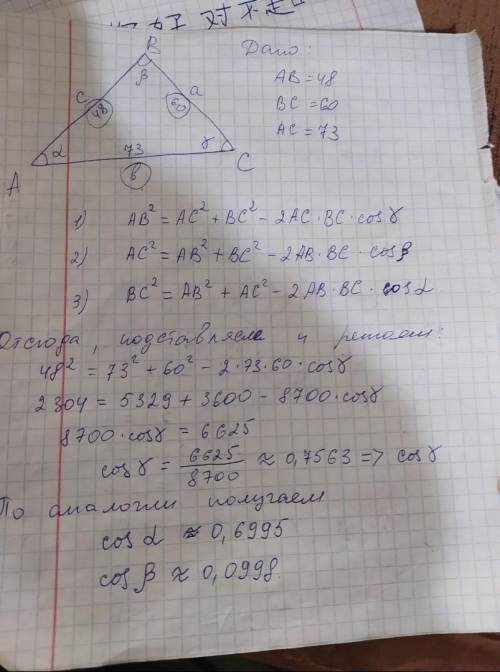 对不起
Дано:
AB = 48
BC = 60
AC = 73
B
β
c
48
60
a
α
73
γ
A
b
C
1) AB² = AC² + BC² - 2AC · BC · cosγ
2) AC² = AB² + BC² - 2AB · BC · cosβ
3) BC² = AB² + AC² - 2AB · BC · cosα
Отсюда, подставляем и решаем:
48² = 73² + 60² - 2 · 73 · 60 · cosγ
2304 = 5329 + 3600 - 8700 · cosγ
8700 · cosγ = 6625
cosγ = 6625/8700 ≈ 0,7563 => cosγ
По аналогии получаем
cosα ≈ 0,6995
cosβ ≈ 0,0998.